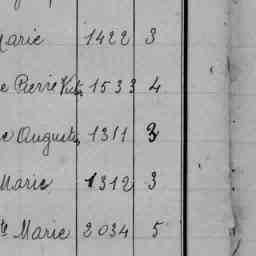 Marie 1422 3
e Pierre Victor 1533 4
e Augustin 1311 3
Marie 1312 3
te Marie 2034 5